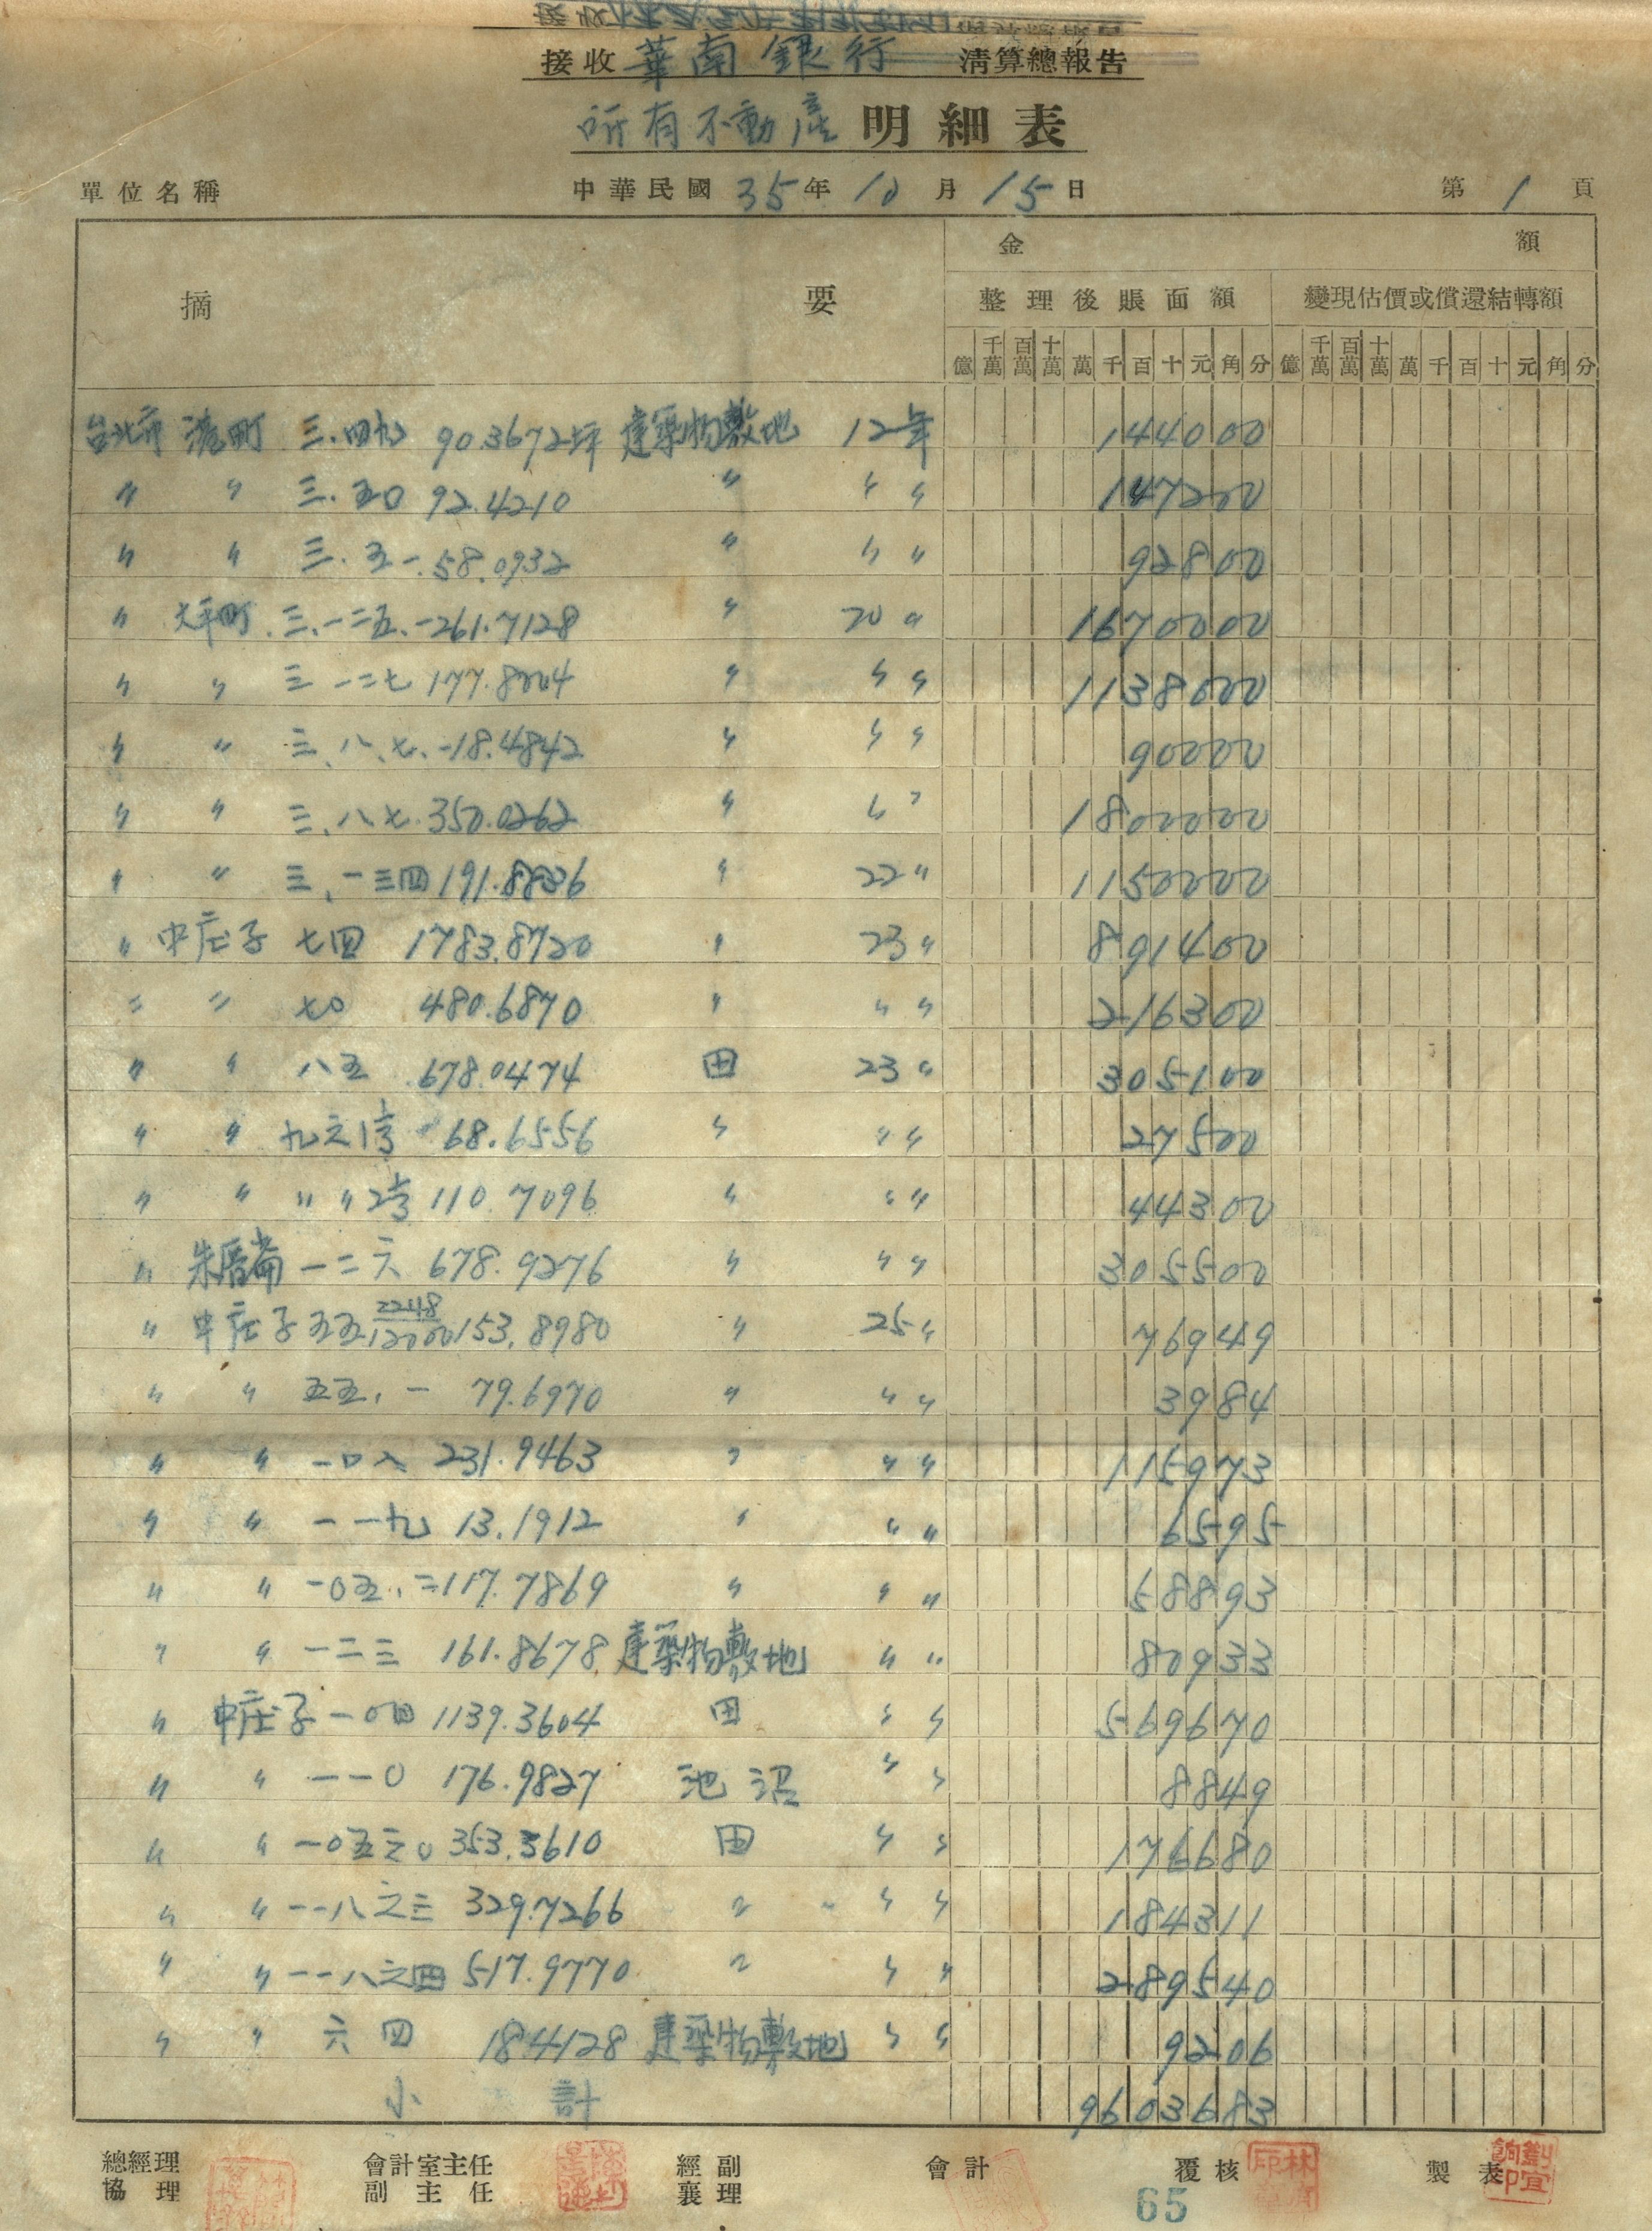 接收 華南銀行 清算總報告
所有不動產 明細表
單位名稱 中華民國 35 年 10 月 15 日 第 1 頁
摘 要 金 額
整理後賬面額 變現估價或償還結轉額
億 千萬 百萬 十萬 萬 千 百 十 元 角 分 億 千萬 百萬 十萬 萬 千 百 十 元 角 分
台北市 港町 三.四九 90.3672坪 建築物敷地 12年 144000
〃 〃 三.五0 92.4210 〃 〃 〃 147200
〃 〃 三.五一 58.0932 〃 〃 〃 92800
〃 太平町 三.一二五.一 261.7128 〃 20 〃 1670000
〃 〃 三 一二七 177.8204 〃 〃 〃 1138000
〃 〃 三.八七.一 18.4842 〃 〃 〃 90000
〃 〃 三.八七 350.0262 〃 〃 〃 1800000
〃 〃 三.一三四 191.8836 〃 22 〃 1150000
〃 中庄子 七四 1783.8720 〃 23 〃 891400
〃 〃 七0 480.6870 〃 〃 〃 216300
〃 〃 八五 678.0474 田 23 〃 305100
〃 〃 九之1号 68.6556 〃 〃 〃 27500
〃 〃 〃 〃 2号 110.7096 〃 〃 〃 44300
〃 朱厝崙 一二六 678.9276 〃 〃 〃 305500
〃 中庄子 五五 2248/12000 153.8980 〃 25 〃 76949
〃 〃 五五.一 79.6970 〃 〃 〃 3984
〃 〃 一0八 231.9463 〃 〃 〃 115973
〃 〃 一一九 13.1912 〃 〃 〃 6595
〃 〃 一0五.二 117.7869 〃 〃 〃 58893
〃 〃 一二三 161.8678 建築物敷地 〃 〃 80933
〃 中庄子 一0四 1139.3604 田 〃 〃 569670
〃 〃 一一0 176.9827 池沼 〃 〃 8849
〃 〃 一0五之0 353.3610 田 〃 〃 176680
〃 〃 一一八之三 329.7266 〃 〃 〃 184311
〃 〃 一一八之四 517.9770 〃 〃 〃 289540
〃 〃 六四 18.4128 建築物敷地 〃 〃 9206
小 計 9603683
總經理 會計室主任 經副 會計 覆核 製表
協理 副主任 襄理
劉宜餉印
65